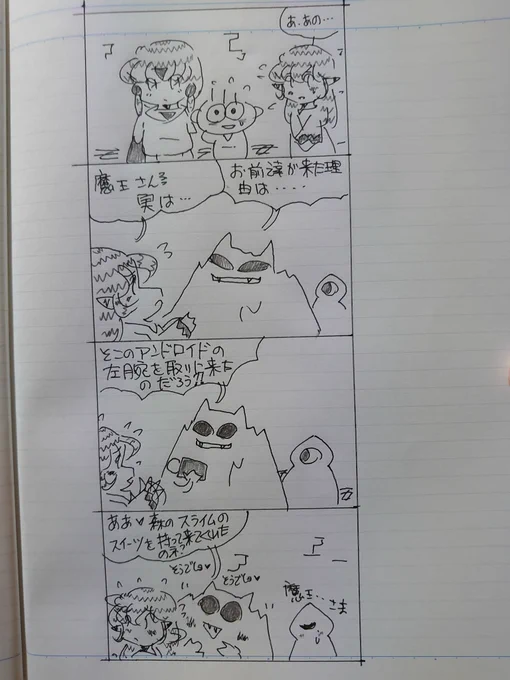 あ、あの…
お前達が来た理
由は‥‥
魔王さん
実は…
そこのアンドロイドの
左腕を取りに来た
のだろう?
ああ♥森のスライムの
スイーツを持って来てくれた
のネ?
そうでしょ♥
そうでしょ♥
魔王‥さま